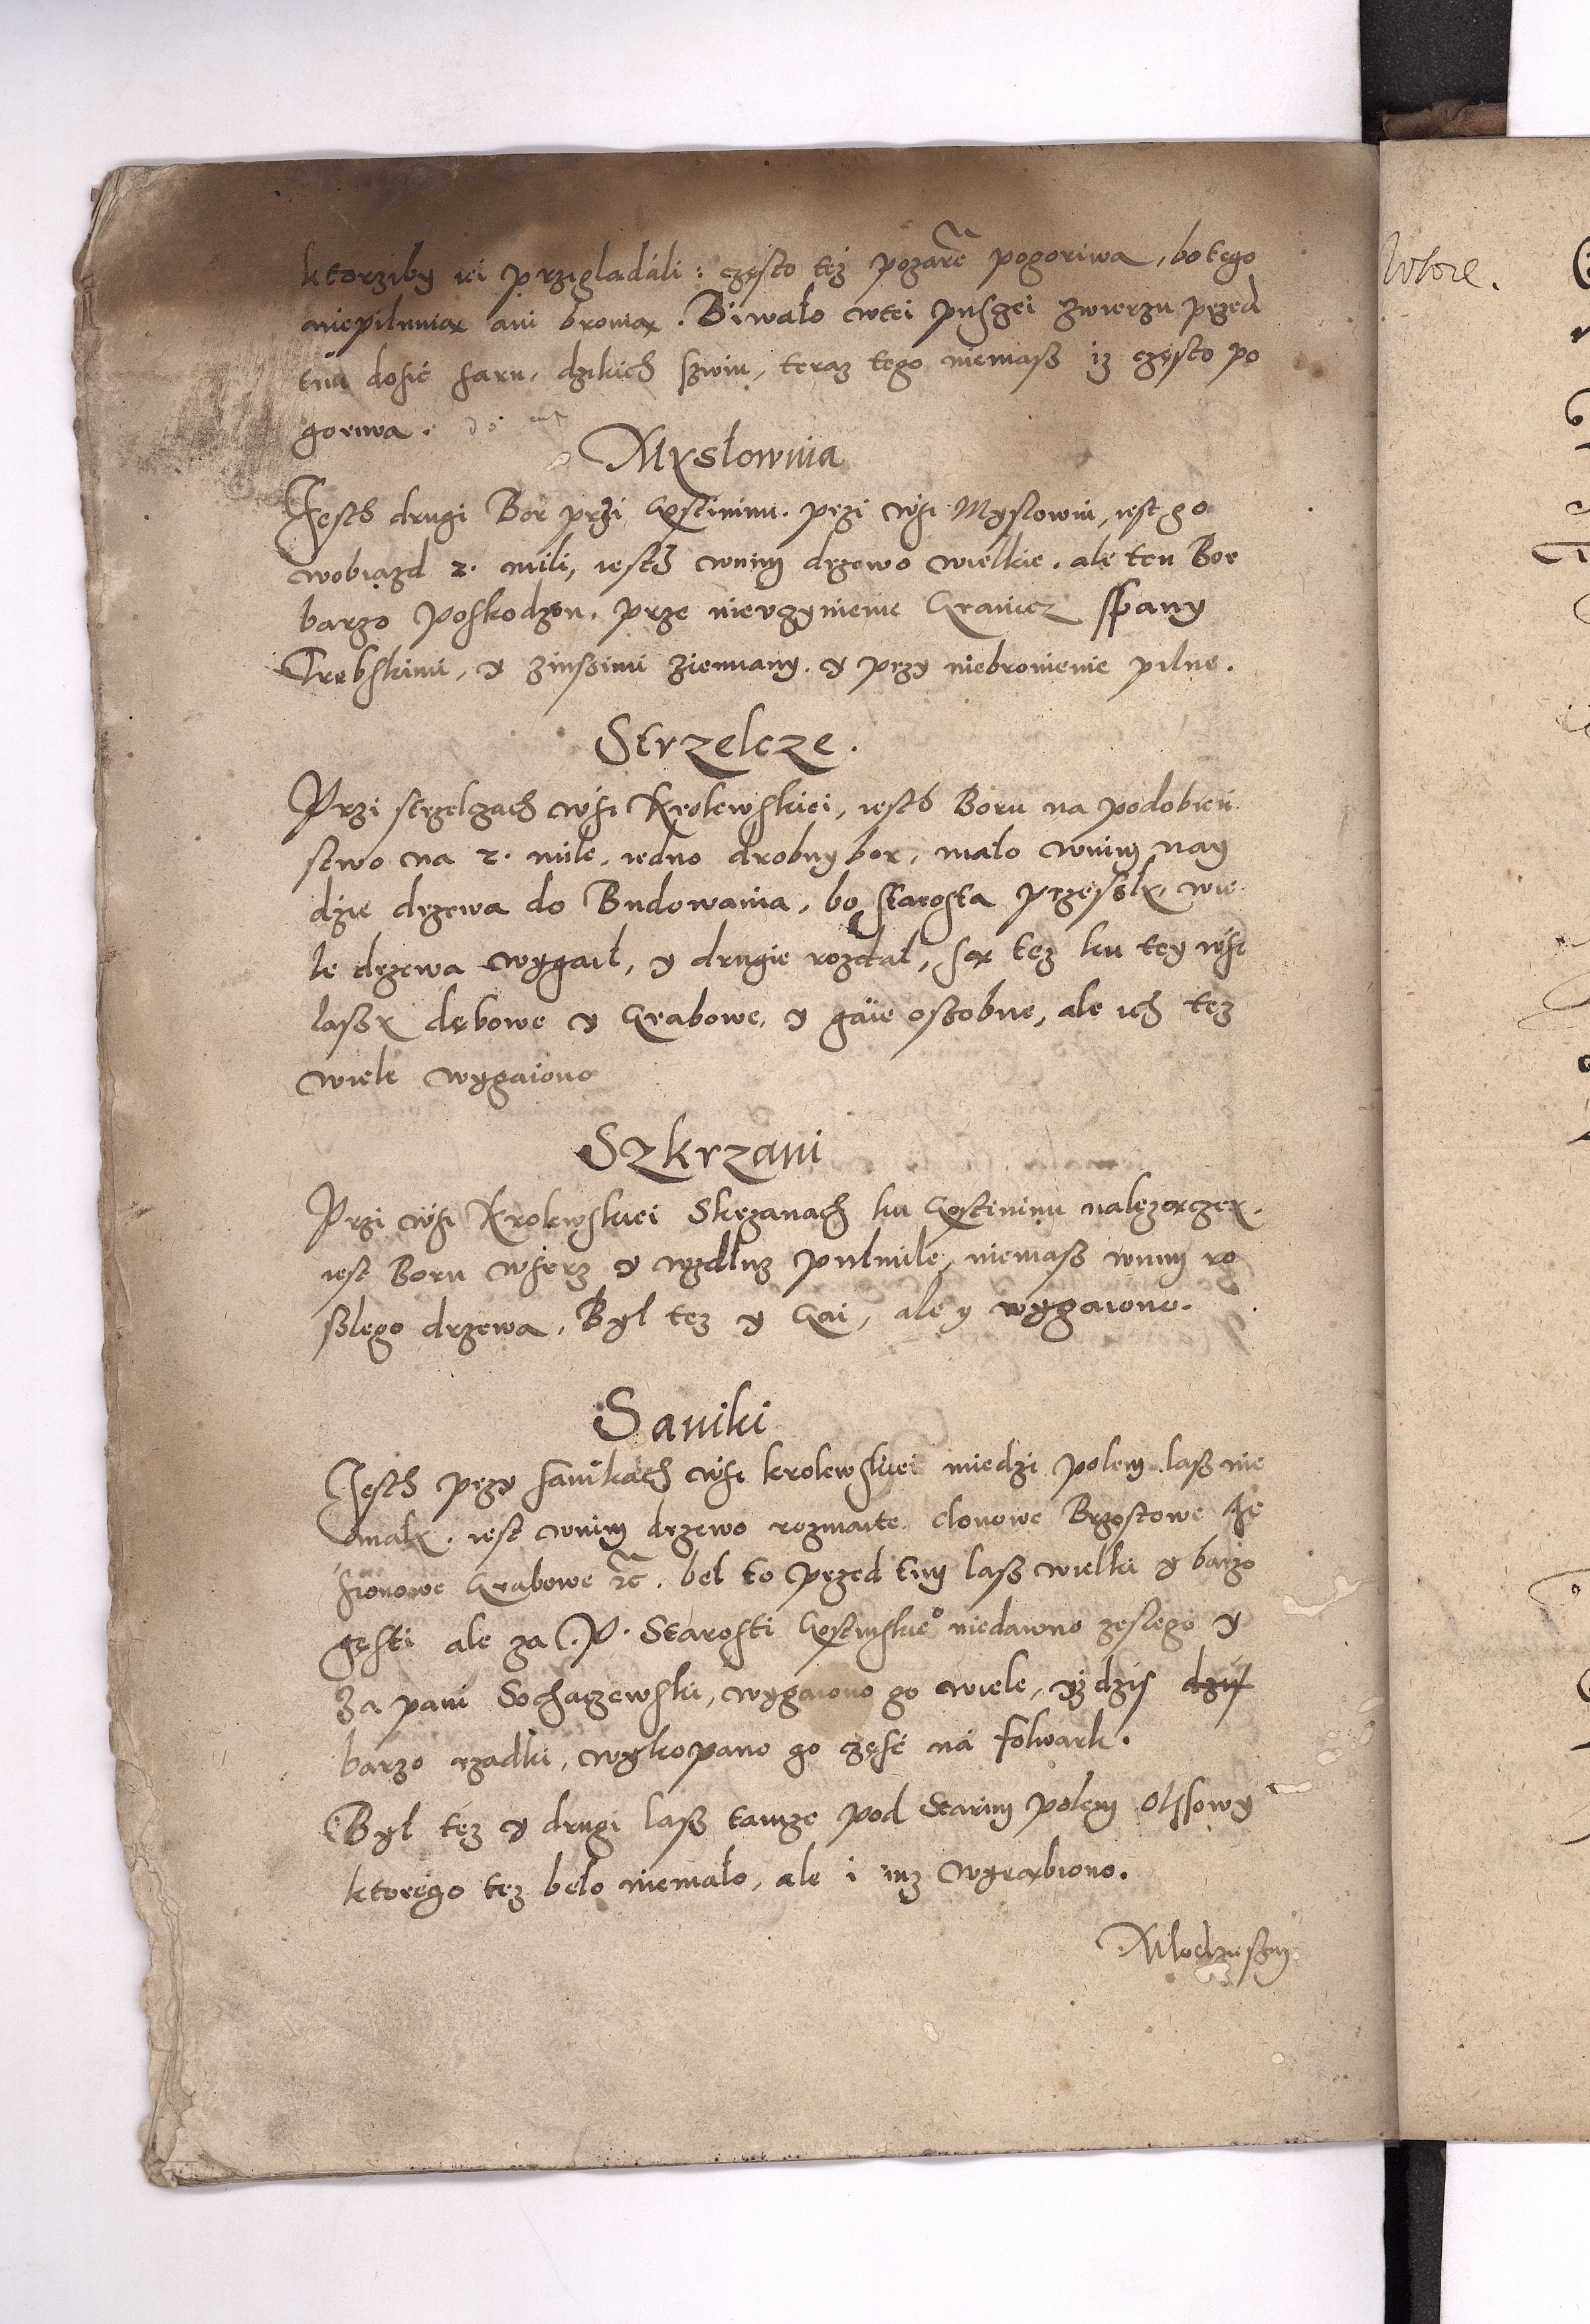 ktorziby iei przigladáli : często też pożarē pogoriwa, bo tego
niepilnuią ani bronią. Biwało wtei pusczei zwierzu przed
tim dosić sarn, dzikich swini, teraz tego niemasz iz często po
goriwa.
Mysłownia
Jesth drugi Bor przi Gostininu. przi wsi Mysłowni, iest go
wobiazd 2. mili, iesth wnim drzewo wielkie, ale ten Bor
barzo poskodzon, prze nieuczynienie Granicz spany
Trębskimi, y zinszimi ziemiany, y przy niebronienie pilne.
Strzelcze.
Przi strzelczach wsi Krolewskiei, iesth Boru na podobień
stwo na 2. mile, iedno drobny bor, mało wnim nay
dzie drzewa do Budowania, bo starosta przeszły wie
le drzewa wygaił, y drugie rozdał, są tez ku tey wsi
laszy dębowe y Grabowe, y gáie oszobne, ale ich tez
wiele wygaiono
Szkrzani
Przi wsi Krolewskiei Skrzanach ku Gostininu należączey.
iest Boru wserz y wzdłuz pulmile, niemasz wnim ro
słego drzewa, Był tez y Gai, ale y wygaiono.
Saniki
Jesth przy sanikach wsi krolewskiei miedzi polem lasz nie
mały. iest wnim drzewo rozmaite clonowe Brzostowe Je
sionowe Grabowe etc. beł to przed tim lasz wielki y barzo
gęsti ale za P. Starosti Gostinskieo niedawno zeslego y
Za pani Sochaczewski, wygaiono go wiele, yż dzis dzis
barzo rzadki, wykopano go część ná folwark.
Był tez y drugi lasz tamze pod Starim polem Olssowy
ktorego tez beło niemało, ale i iuz wyrąbiono.